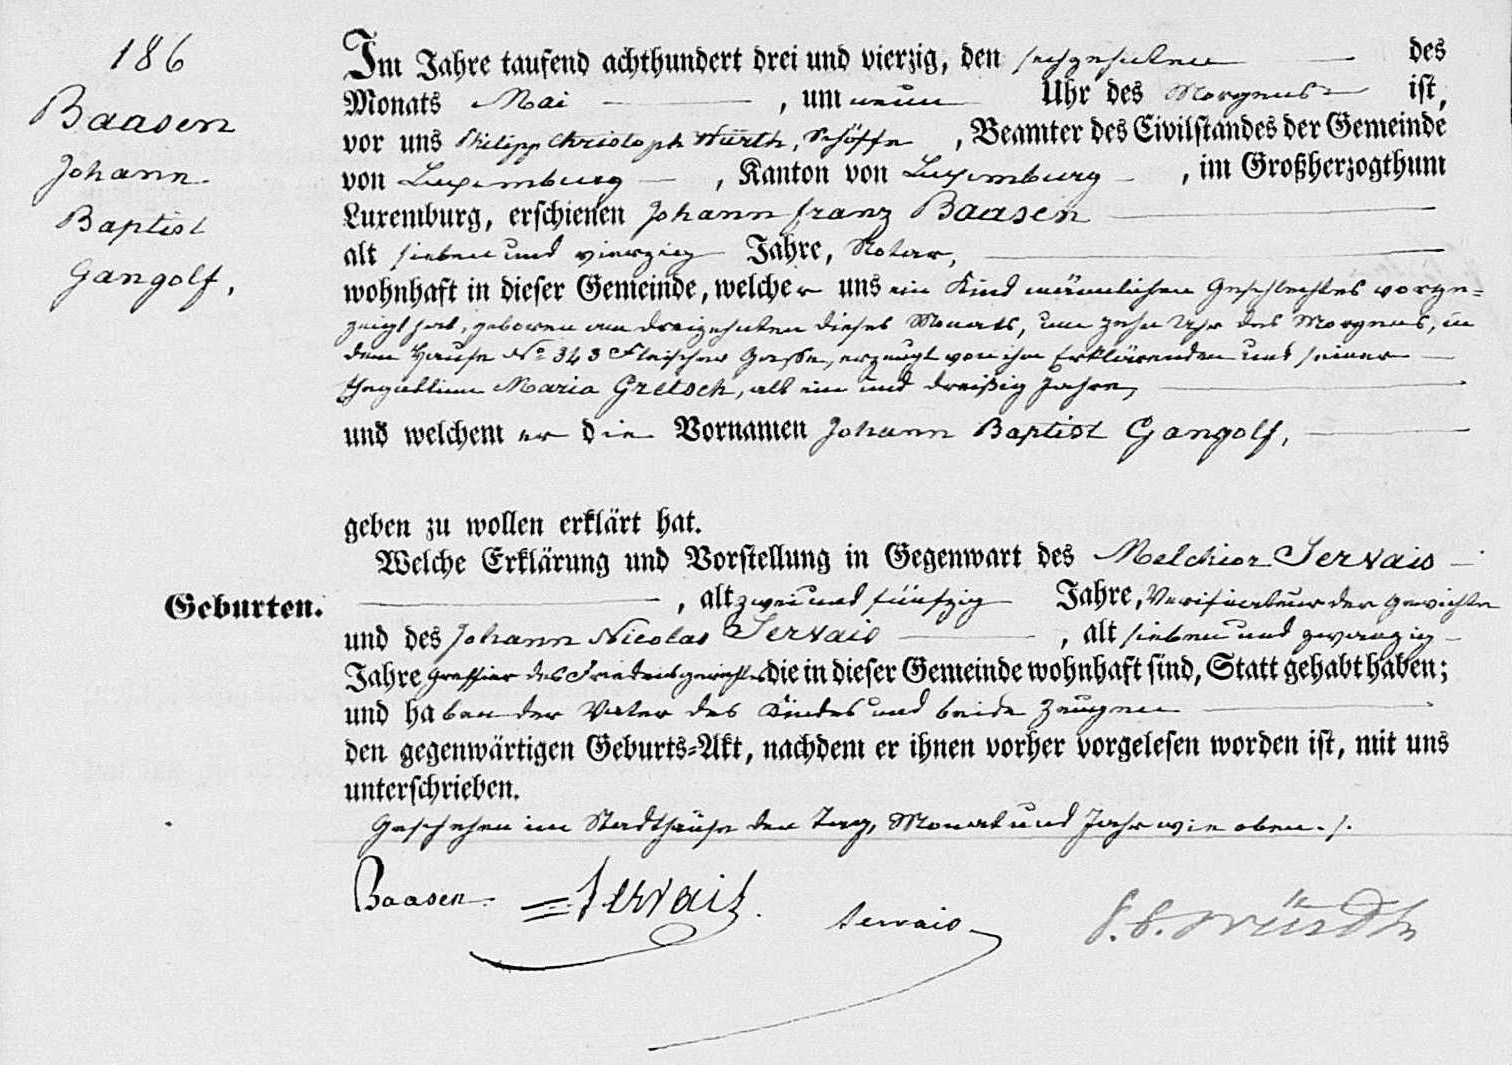 186
Baasen
Johann
Baptist
Gangolf,
Im Jahre tausend achthundert drei und vierzig, den sechszehnten des
Monats Mai, um neun Uhr des Morgens ist,
vor uns Philipp Christoph Würth, Schöffe, Beamter des Civilstandes der Gemeinde
von Luxemburg, Kanton von Luxemburg, im Großherzogthum
Luxemburg, erschienen Johann Franz Baasen
alt sieben und vierzig Jahre, Notar,
wohnhaft in dieser Gemeinde, welcher uns ein Kind männlichen Geschlechtes vorge=
zeigt hat, geboren am dreizehnten dieses Monats, um zehn Uhr des Morgens, in
dem Hause No 343 Fleischer Gasse, erzeugt von ihm Erklärenden und seiner
Ehegattinn Maria Gretsch, alt ein und dreißig Jahre,
und welchem er die Vornamen Johann Baptist Gangolf,
geben zu wollen erklärt hat.
Welche Erklärung und Vorstellung in Gegenwart des Melchior Servais
Geburten.
, alt zwei und fünfzig Jahre, Verificateur der Gewichte
und des Johann Nicolas Servais, alt sieben und zwanzig
Jahre Greffier des Friedensgerichtes die in dieser Gemeinde wohnhaft sind, Statt gehabt haben;
und haben der Vater des Kindes und beide Zeugen
den gegenwärtigen Geburts=Akt, nachdem er ihnen vorher vorgelesen worden ist, mit uns
unterschrieben.
Geschehen im Stadthause den Tag, Monat und Jahr wie oben ./.
Baasen Servais. Servais P. C. Würth